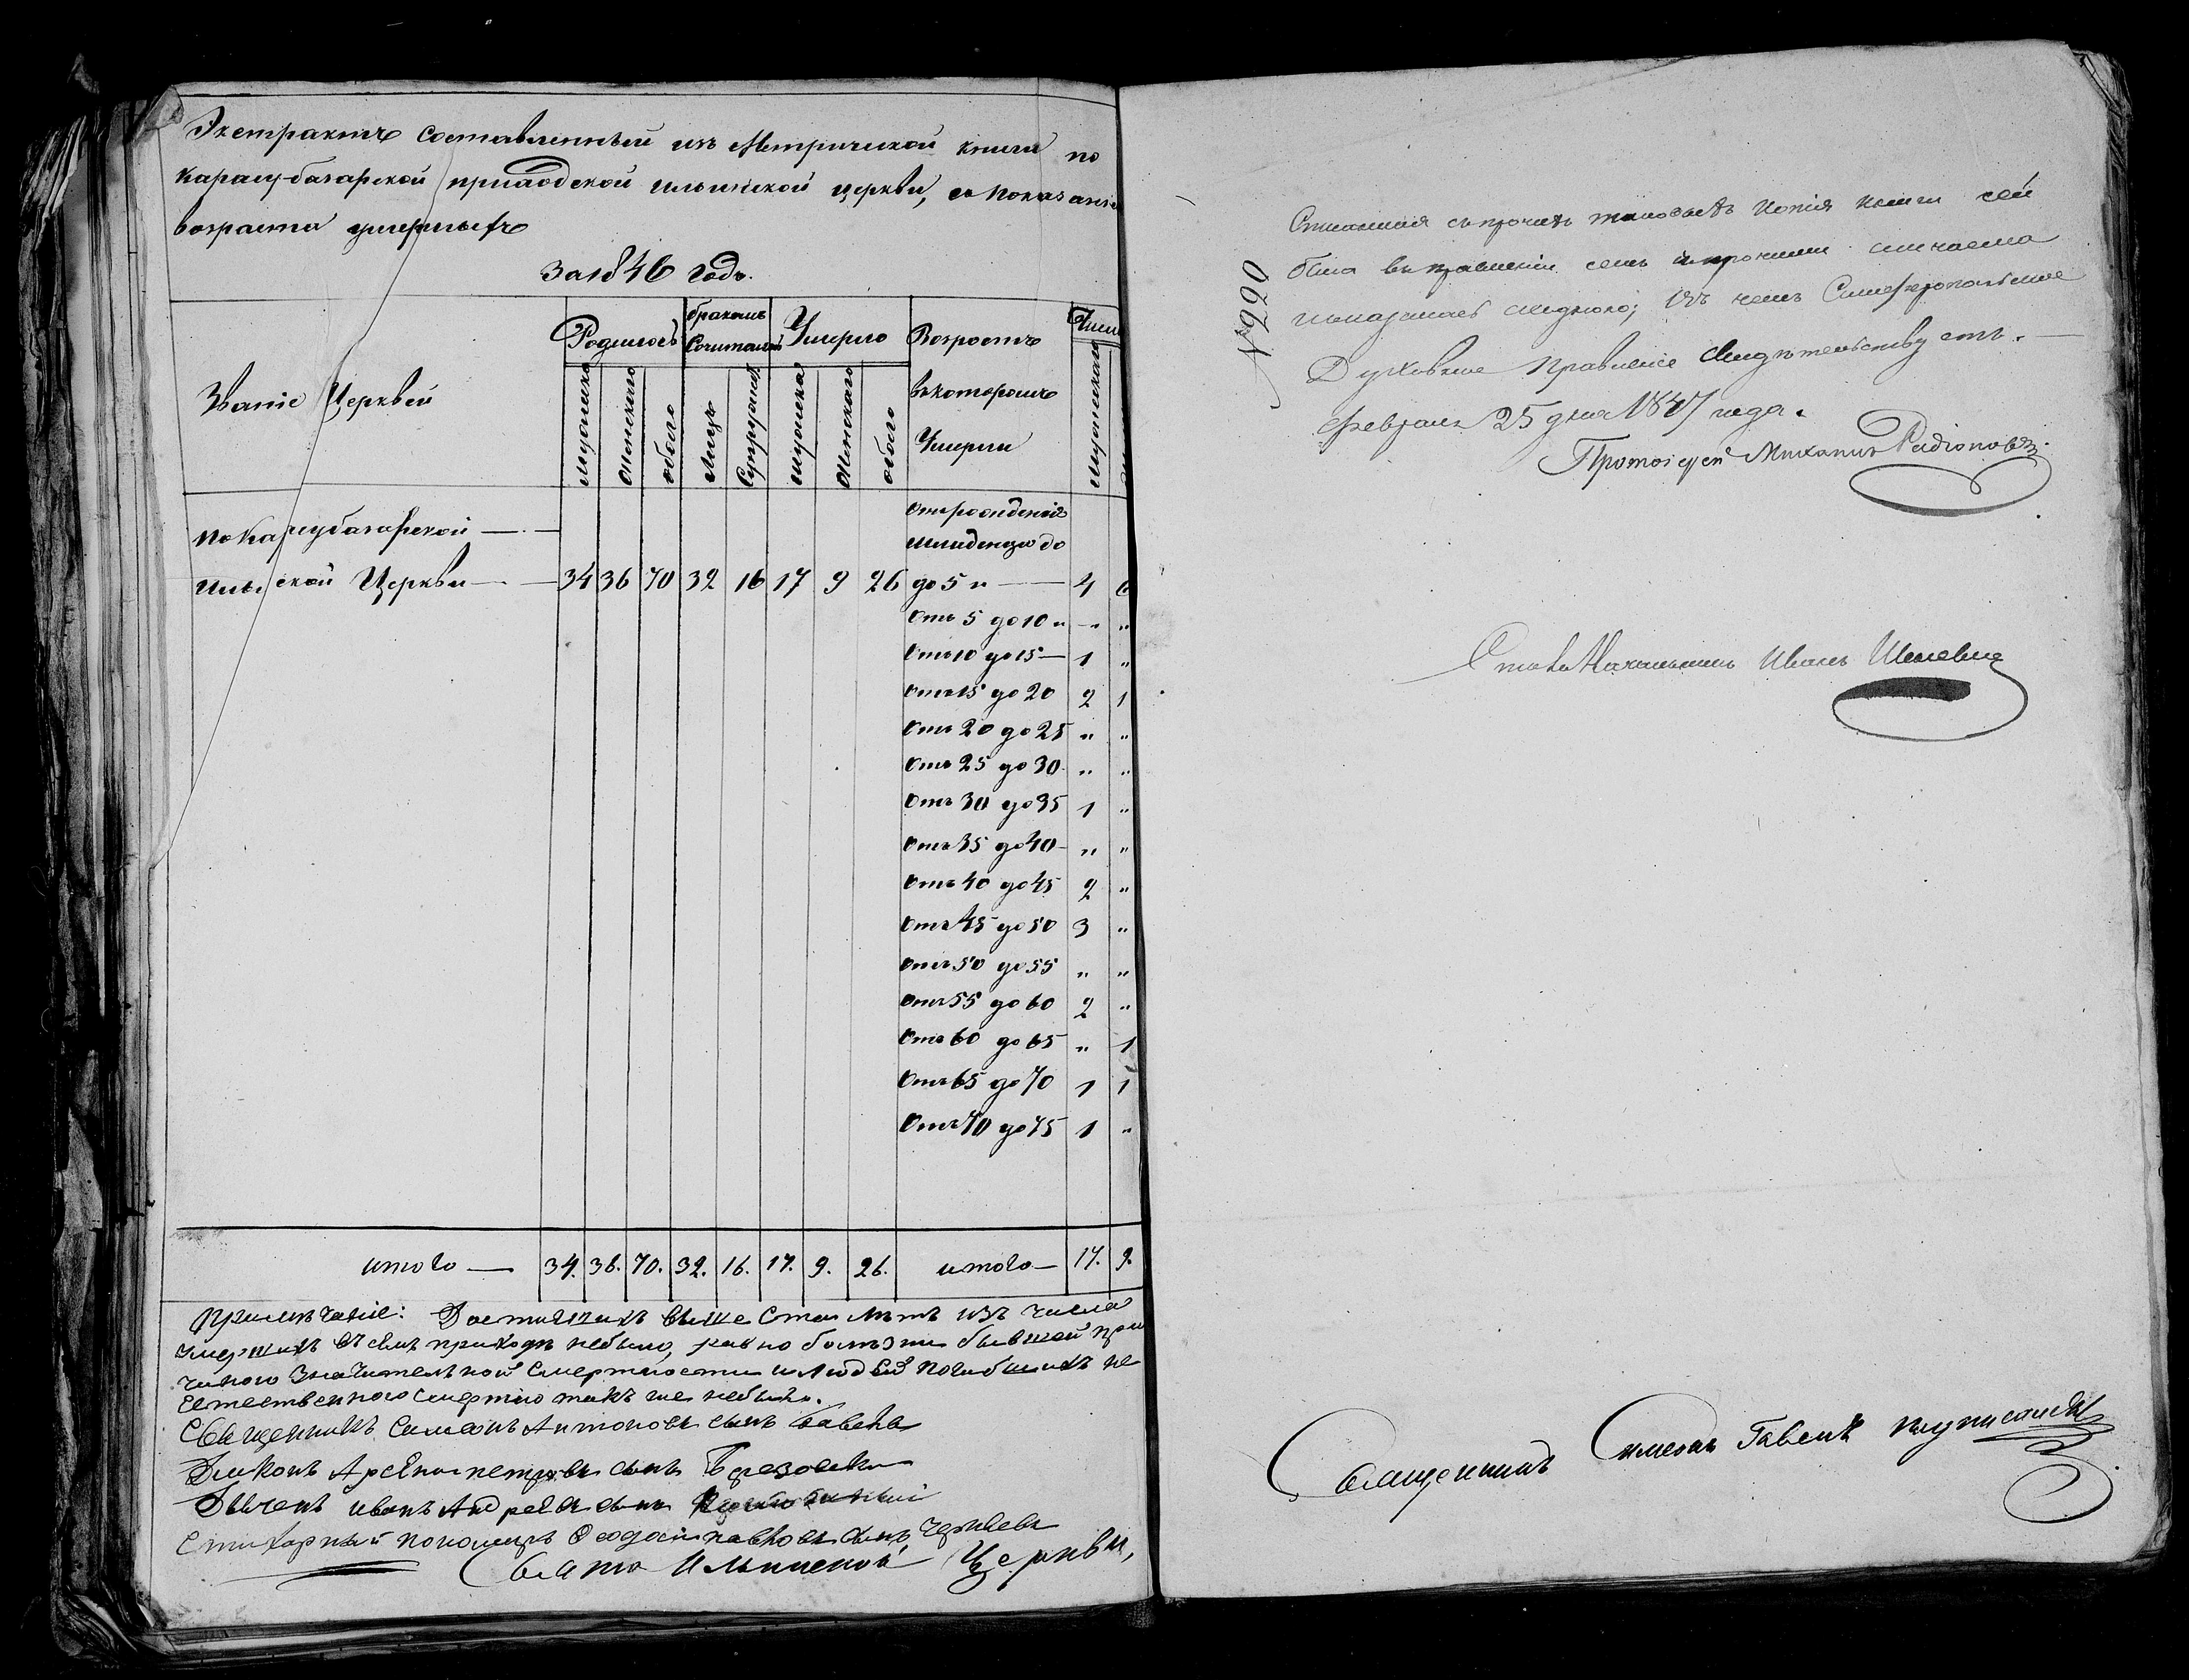 Экстрактъ составленный изъ Метрической книги по
Карасу-базарской приходской ильинской церкви, съ показаніе
возраста умершихъ
За 1846 годъ.
Званіе Церквей
Родилось
бракомъ Сочиталось
Умерло
Возростъ въ которомъ Умерли
Число
Мужеска
Женскаго
обоего
Лицъ
Супружес
Мужеска
Женскаго
обоего
Мужескаго
По Карасубазарской —
Отъ рожденія
младенцо до
Ильинской Церкви — 34 36 70 32 16 17 9 26 до 5 „ — 4 6
Отъ 5 до 10 „ „ „
Отъ 10 до 15 — 1 „
Отъ 15 до 20 2 1
Отъ 20 до 25 „ „
Отъ 25 до 30 „ „
Отъ 30 до 35 1 „
Отъ 35 до 40 „ „
Отъ 40 до 45 2 „
Отъ 45 до 50 3 „
Отъ 50 до 55 „ „
Отъ 55 до 60 2 „
Отъ 60 до 65 „ 1
Отъ 65 до 70 1 1
Отъ 70 до 75 1 „
итого — 34. 36. 70. 32. 16. 17. 9. 26. итого — 17. 9.
Примѣчаніе: Достигшихъ выше Ста лѣтъ изъ числа
умершихъ въ семъ приходѣ небыло, равно болѣзни бывшей при
чиною значительной смертности и людей погибшихъ не
естественною смертію такъ же небыло.
Священникъ Симеонъ Антоновъ сынъ Гавель
Діаконъ Арсеній петровъ сынъ
Дьячекъ иванъ Андреевъ сынъ
Стихарный пономарь Феодосій павловъ сынъ
Свято Ильинской Церкви,
№ 220
съ прочихъ таковыхъ копія книги сей
была въ правленіи семъ и прочими сличаема
и оказалась сходною; въ чемъ Симферопольское
Духовное Правленіе свидѣтельствуетъ. —
Февраля 25 дня 1847 года.
Протоіерей Михаилъ Радіоновъ.
Столоначальникъ Иванъ
Священникъ Симеонъ Гавель